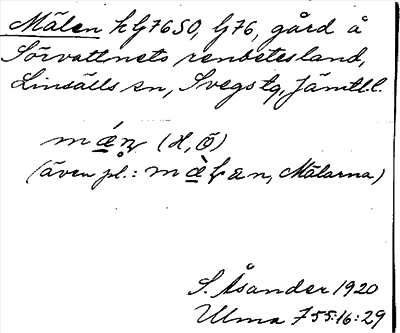 Mälen k G76SO, G76, gård å
Sörvattnets renbetesland,
Linsälls sn, Svegs tg, Jämtl.l.
(H, Ö)
(även pl.: Mälarna)
S. Åsander 1920
Ulma 755:16:29